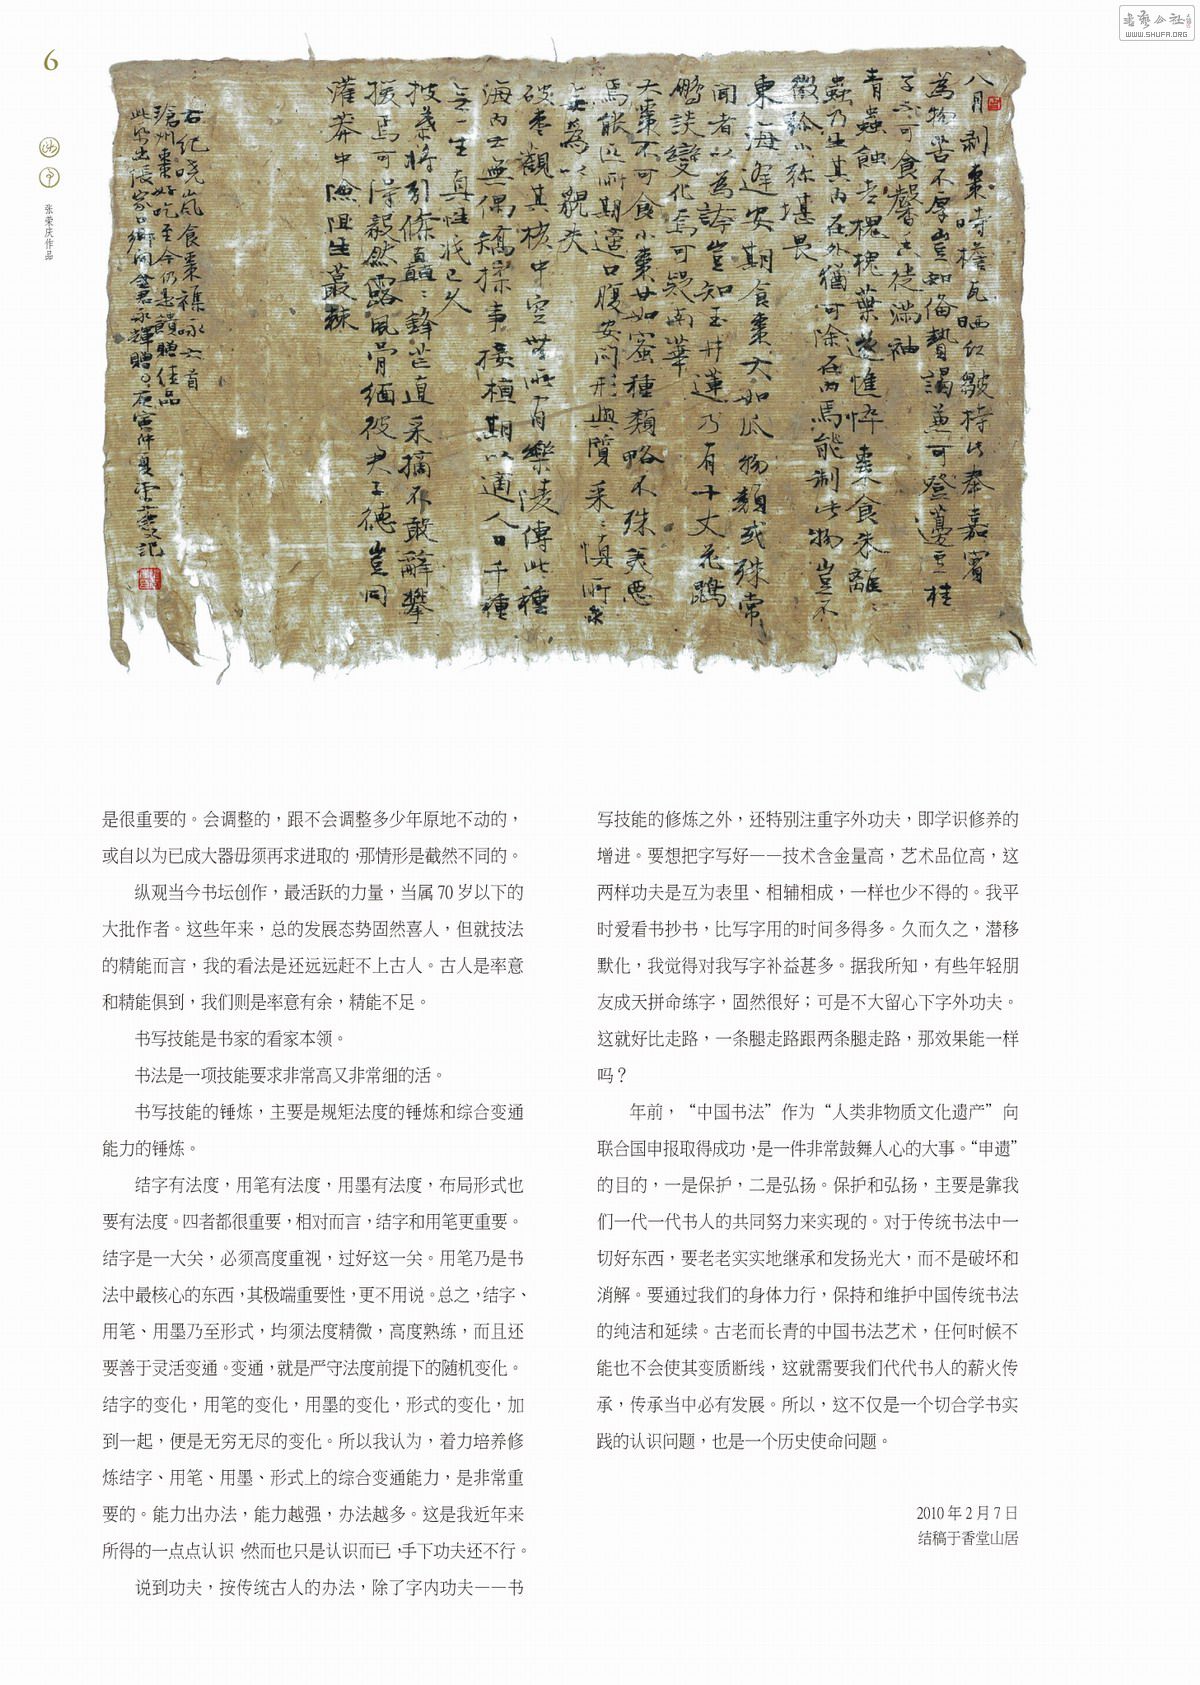 6
张荣庆作品
WWW.SHUFA.ORG
八月剥棗時檐瓦晒红皺持此奉嘉賓
為物苦不厚豈知脩贄謁兼可登籩豆桂
子亦可食馨香徒滿袖
青蟲蝕老槐槐葉遂憔悴棗食朱離離
蟲乃生其内在外猶可除在内焉能制此物豈不
微紛尒弥堪畏
東海逢安期食棗大如瓜物類或殊常
聞者以為誇豈知玉井蓮乃有十丈花鵾
鵬談變化焉可疑南華
大棗不可食小棗甘如蜜種類略不殊美恶
破枣觀其核中空無所有樂陵傳此種
海内士無偶
石纪晓岚食棗襍咏六首
滄州棗好吃至今仍是饋贈佳品
是很重要的。会调整的，跟不会调整多少年原地不动的，
或自以为已成大器毋须再求进取的，那情形是截然不同的。
纵观当今书坛创作，最活跃的力量，当属 70 岁以下的
大批作者。这些年来，总的发展态势固然喜人，但就技法
的精能而言，我的看法是还远远赶不上古人。古人是率意
和精能俱到，我们则是率意有余，精能不足。
书写技能是书家的看家本领。
书法是一项技能要求非常高又非常细的活。
书写技能的锤炼，主要是规矩法度的锤炼和综合变通
能力的锤炼。
结字有法度，用笔有法度，用墨有法度，布局形式也
要有法度。四者都很重要，相对而言，结字和用笔更重要。
结字是一大关，必须高度重视，过好这一关。用笔乃是书
法中最核心的东西，其极端重要性，更不用说。总之，结字、
用笔、用墨乃至形式，均须法度精微，高度熟练，而且还
要善于灵活变通。变通，就是严守法度前提下的随机变化。
结字的变化，用笔的变化，用墨的变化，形式的变化，加
到一起，便是无穷无尽的变化。所以我认为，着力培养修
炼结字、用笔、用墨、形式上的综合变通能力，是非常重
要的。能力出办法，能力越强，办法越多。这是我近年来
所得的一点点认识，然而也只是认识而已，手下功夫还不行。
说到功夫，按传统古人的办法，除了字内功夫——书
写技能的修炼之外，还特别注重字外功夫，即学识修养的
增进。要想把字写好——技术含金量高，艺术品位高，这
两样功夫是互为表里、相辅相成，一样也少不得的。我平
时爱看书抄书，比写字用的时间多得多。久而久之，潜移
默化，我觉得对我写字补益甚多。据我所知，有些年轻朋
友成天拼命练字，固然很好；可是不大留心下字外功夫。
这就好比走路，一条腿走路跟两条腿走路，那效果能一样
吗？
年前，“中国书法”作为“人类非物质文化遗产”向
联合国申报取得成功，是一件非常鼓舞人心的大事。“申遗”
的目的，一是保护，二是弘扬。保护和弘扬，主要是靠我
们一代一代书人的共同努力来实现的。对于传统书法中一
切好东西，要老老实实地继承和发扬光大，而不是破坏和
消解。要通过我们的身体力行，保持和维护中国传统书法
的纯洁和延续。古老而长青的中国书法艺术，任何时候不
能也不会使其变质断线，这就需要我们代代书人的薪火传
承，传承当中必有发展。所以，这不仅是一个切合学书实
践的认识问题，也是一个历史使命问题。
2010 年 2 月 7 日
结稿于香堂山居